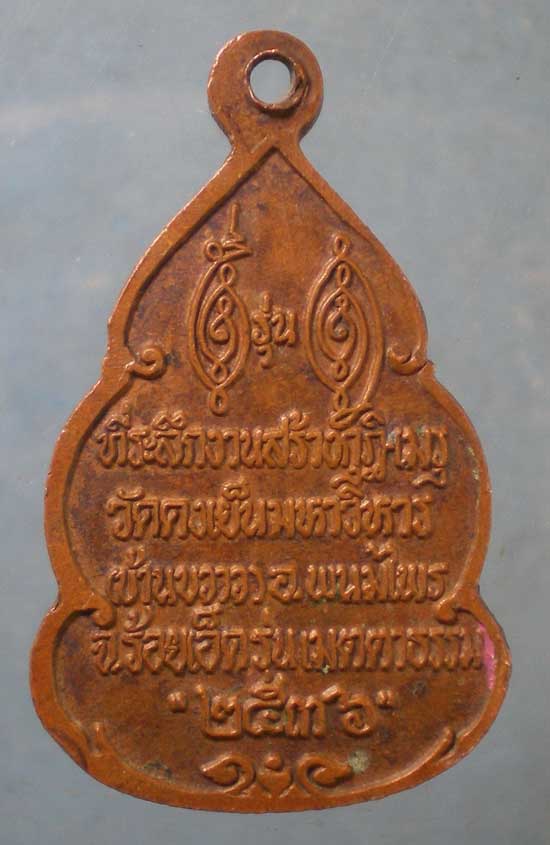 รุ่น
ที่ระลึกงานสร้างกุฏิ-เมรุ
วัดดงเย็นมหาวิหาร
อ.พนมไพร
จ.ร้อยเอ็ด รุ่นเมตตาธรรม
"๒๕๓๖"